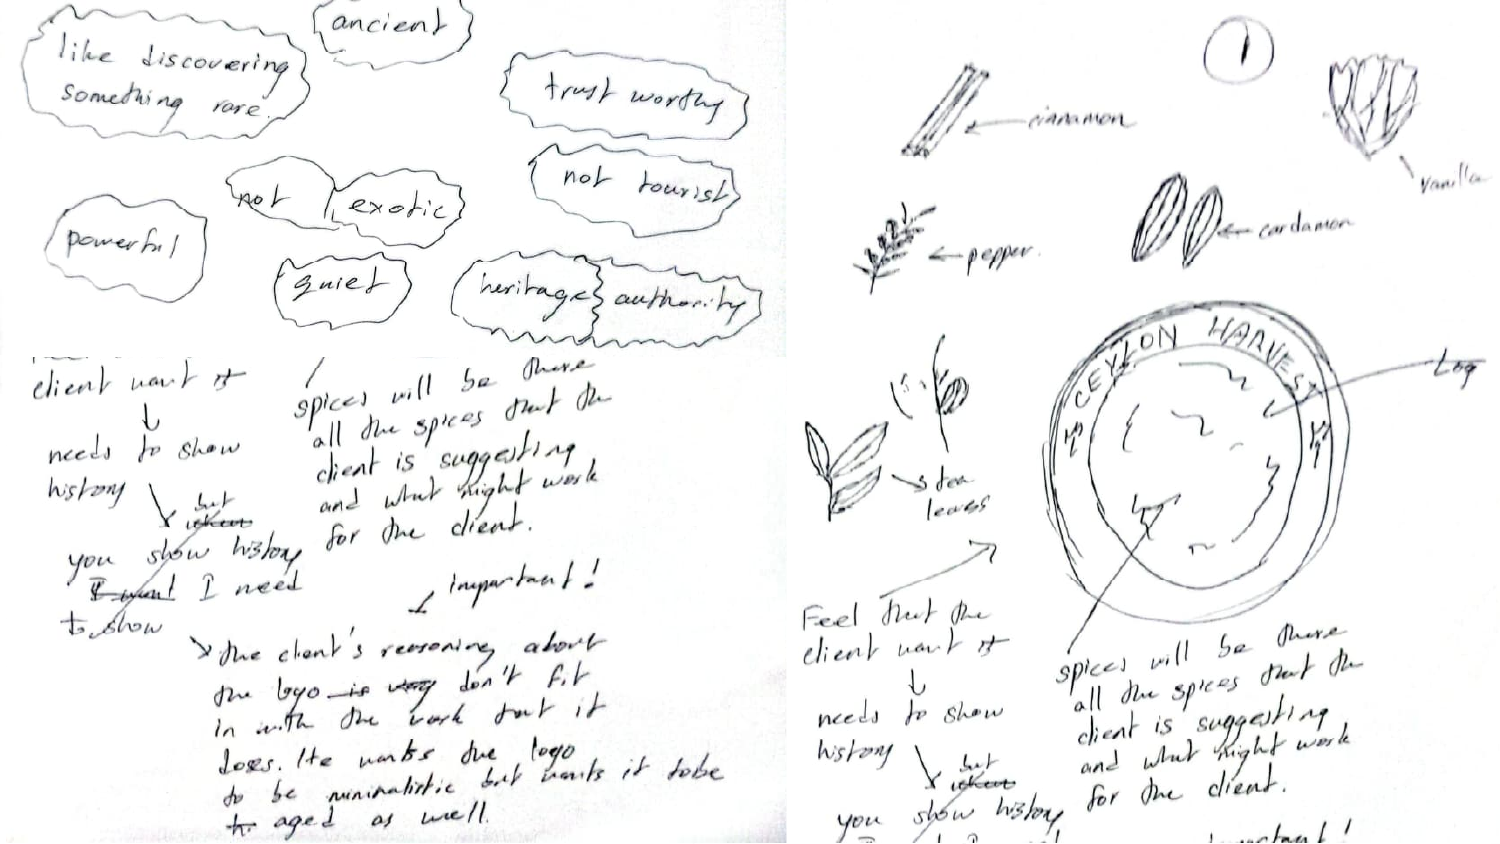 ancient
like discovering
something rare.
trust worthy
not tourist
not
exotic
powerful
quiet
heritage
authority
client want it
needs to show
history
but
you show history
I want I need
to show
spices will be there
all the spices that the
client is suggesting
and what might work
for the client.
important!
the client's reasoning about
the logo is very don't fit
in with the work that it
does. He wants the logo
to be minimalistic but wants it to be
to aged as well.
1
cinnamon
vanilla
cardamon
pepper.
CEYLON HARVEST
Log
tea
leaves
Feel that the
client want it
needs to show
history
but
you show history
spices will be there
all the spices that the
client is suggesting
and what might work
for the client.
important!